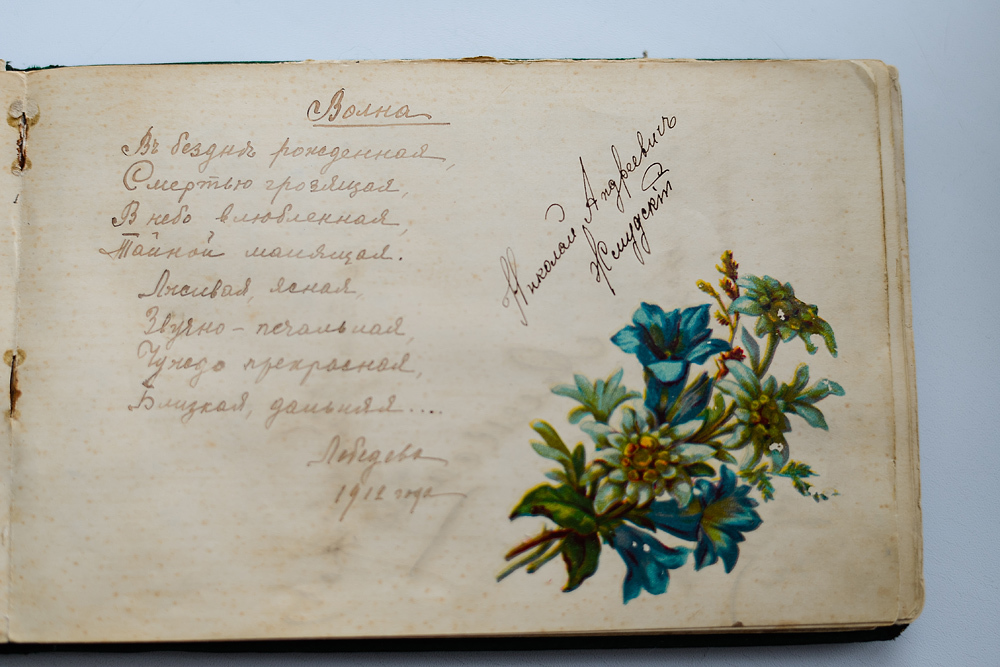 Волна
Въ безднѣ рожденная,
Смертью грозящая,
В небо влюбленная,
Тайной манящая.
Лживая, ясная,
Звучно-печальная,
Чуждо прекрасная,
Близкая, дальняя....
Лебедева
1912 года
Николай Андреевичъ
Жмудскій